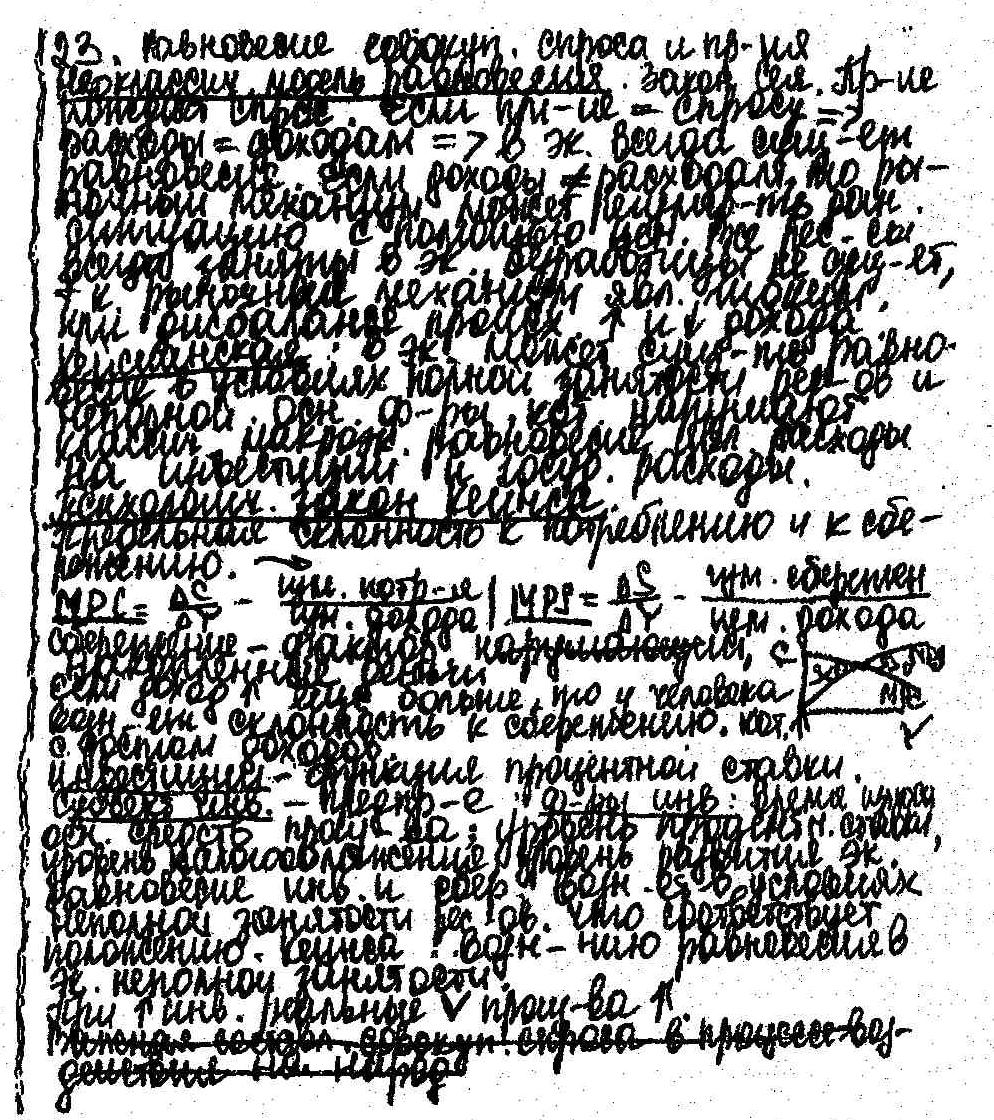 23. Равновесие совокуп. спроса и пр-ия
Неоклассич. модель равновесия. Закон Сея. Пр-ие
рождает спрос. Если пр-ие = спросу =>
расходы = доходам => в эк. всегда сущ-ет
равновесие. Если доходы ≠ расходам, то ры-
ночный механизм может регулир-ть рын.
ситуацию с помощью цен. Все рес-сы
всегда заняты в эк. безработицы не сущ-ет,
т к рыночный механизм явл.
при дисбалансе происх. ↑ и ↓ дохода.
Кейсианская: в эк. может сущ-ть равно-
весие в условиях полной занятости рес-ов и
неполной. Осн. ф-ры, кот нарушают
классич макроэк. равновесие явл. расходы
на инвестиции и госуд. расходы.
Психологич. закон Кейнса.
Предельная склонность к потреблению и к сбе-
режению. →
MPC = ΔC/ΔY - изм. потр-я/изм. дохода | MPS = ΔS/ΔY - изм. сбережен/изм. дохода
сбережение - фактор нарушающий, C
накопленные деньги
Если доход ↑ еще больше, то у человека MPC
возн-ет склонность к сбережению. кот. ↑
с ростом доходов. Y
Инвестиции - функция процентной ставки.
Субъект инв. - предпр-е. Ф-ры инв: время износа
осн. средств произ-ва; уровень процентн. ставки,
уровень налогообложения, уровень развития эк.
Равновесие инв. и сбер. возн-ет в условиях
неполной занятости рес-ов. что соответствует
положению. Кейнса. возн-нию равновесия в
эк. неполной занятости.
При ↑ инв. реальные V произ-ва ↑.
Важная составл. совокуп. спроса в процессе воз-
действия на народ